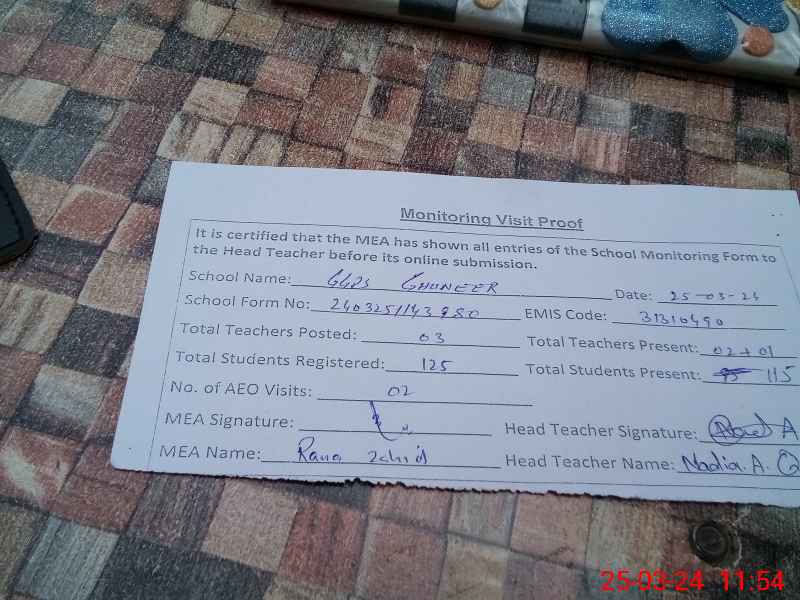 Monitoring Visit Proof
It is certified that the MEA has shown all entries of the School Monitoring Form to
the Head Teacher before its online submission.
School Name: GGPS GHUNEER Date: 25-03-24
School Form No: 2403251143980 EMIS Code: 31310490
Total Teachers Posted: 03 Total Teachers Present: 02+01
Total Students Registered: 125 Total Students Present: 115
No. of AEO Visits: 02
MEA Signature: Head Teacher Signature:
MEA Name: Rana Zahid Head Teacher Name: Nadia. A.
25-03-24 11:54